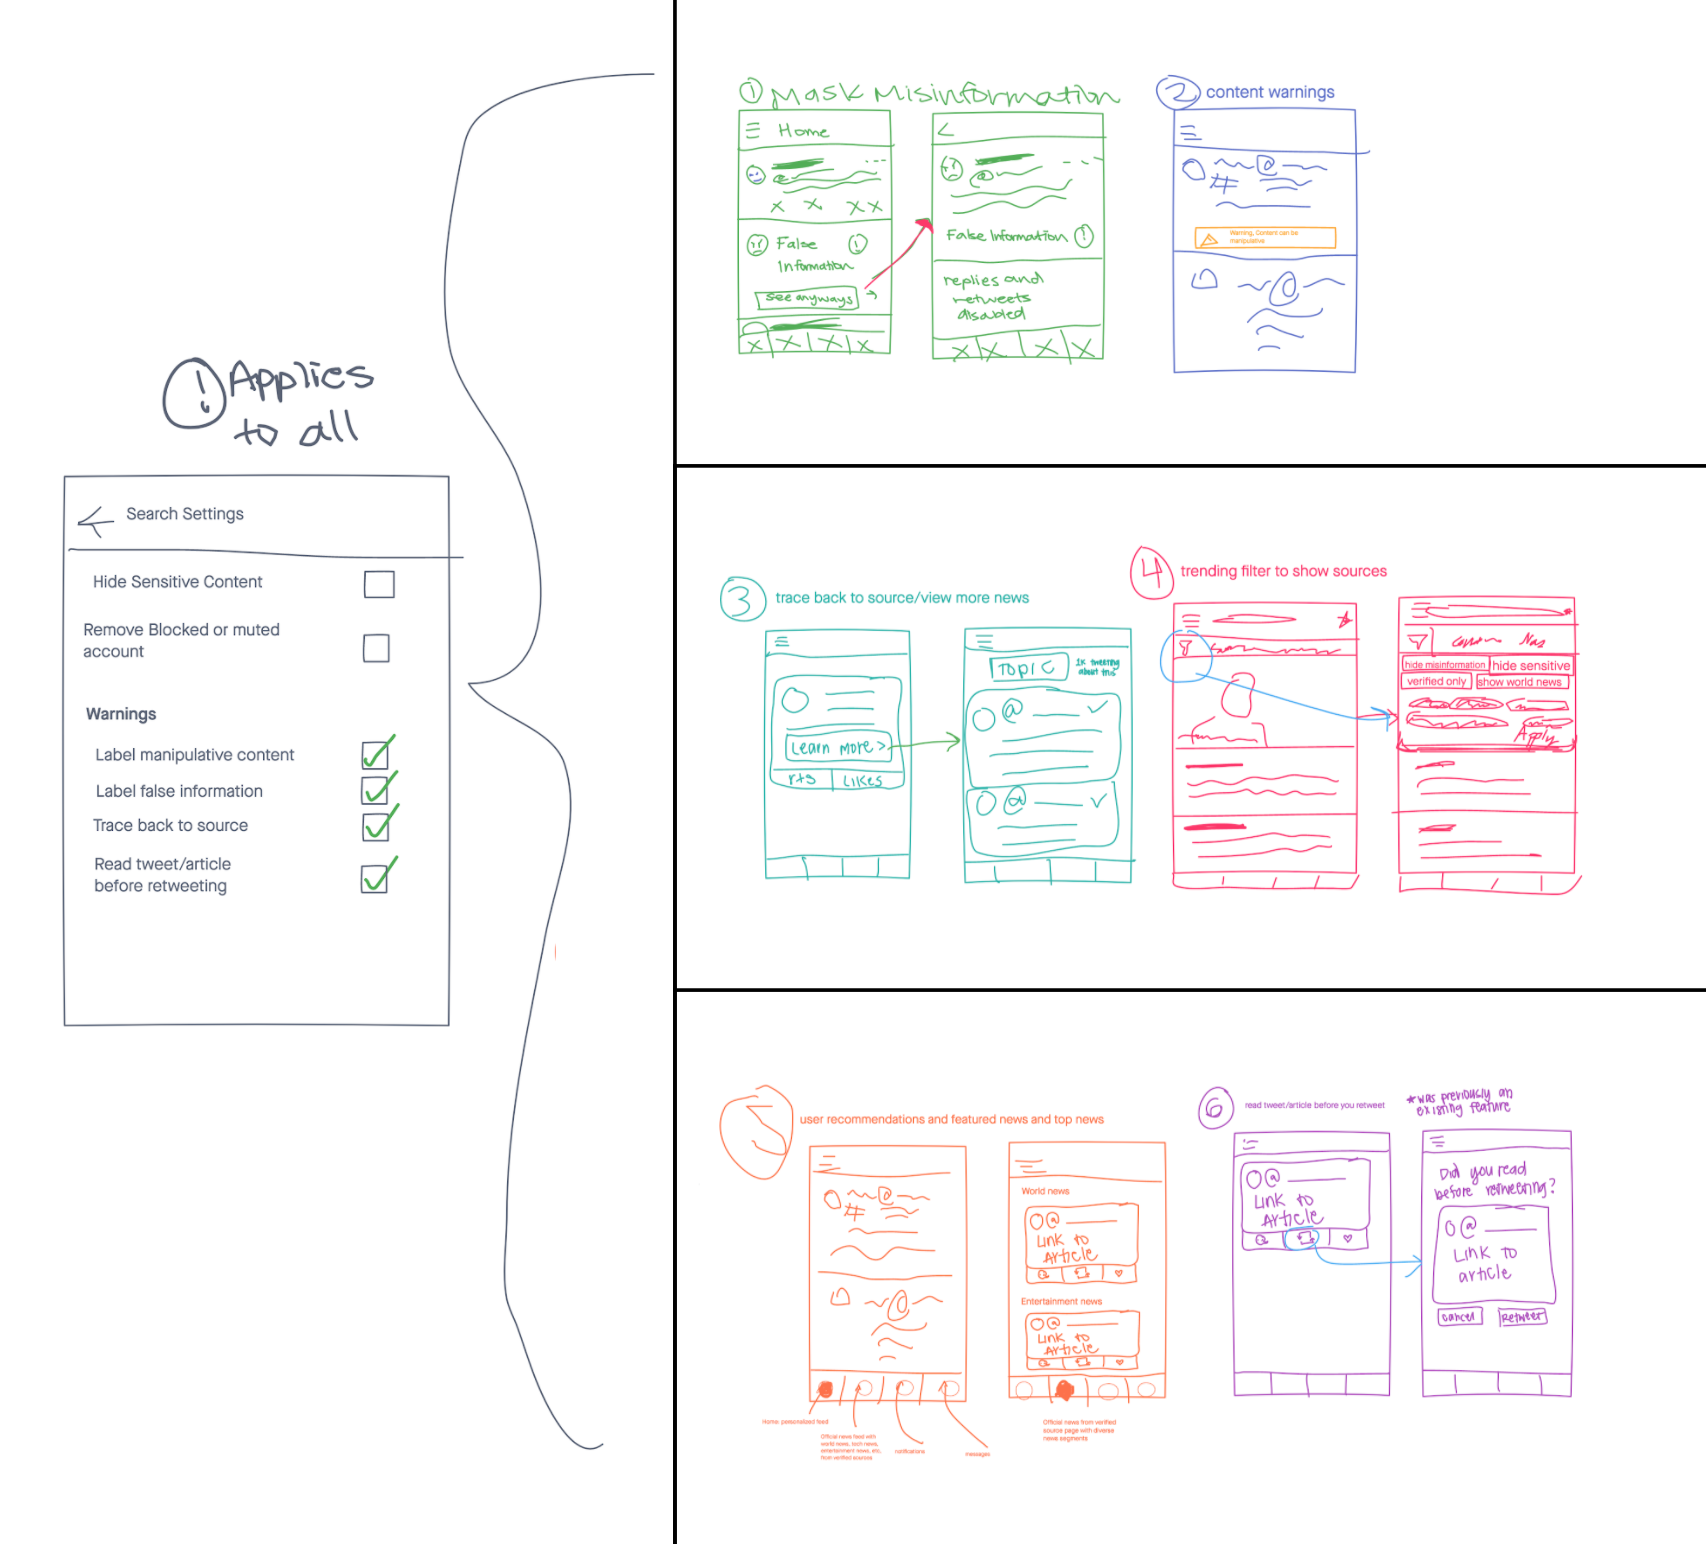 ! Applies
to all
Search Settings
Hide Sensitive Content
Remove Blocked or muted
account
Warnings
Label manipulative content
Label false information
Trace back to source
Read tweet/article
before retweeting
1 Mask Misinformation
Home
@
False !
Information
see anyways
@
False Information !
replies and
retweets
disabled
2 content warnings
@
#
Warning, Content can be
manipulative
@
3 trace back to source/view more news
Learn more >
rts Likes
Topic
1k tweeting
about this
@
@
4 trending filter to show sources
hide misinformation hide sensitive
verified only show world news
Apply
5 user recommendations and featured news and top news
@
#
@
Home: personalized feed
Official news feed with
world news, tech news,
entertainment news, etc.
from verified sources
notifications
messages
World news
@
Link to
Article
Entertainment news
@
Link to
Article
Official news from verified
source page with diverse
news segments
6 read tweet/article before you retweet
*was previously an
existing feature
@
Link to
Article
Did you read
before retweeting?
@
Link to
article
cancel Retweet